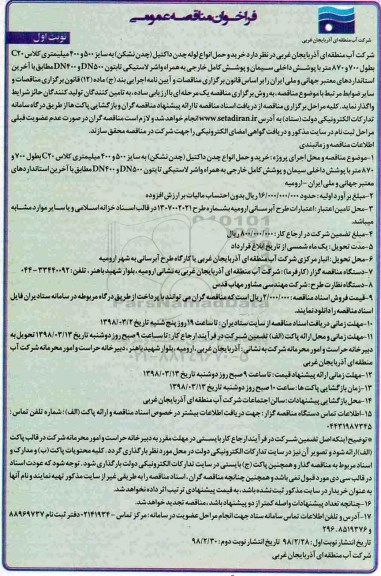 فراخوان مناقصه عمومی
شرکت آب منطقه ای آذربایجان غربی
نوبت اول
شرکت آب منطقه ای آذربایجان غربی در نظر دارد خرید و حمل انواع لوله چدن داکتیل (چدن نشکن) به سایز ۵۰۰ و ۴۰۰ میلیمتری کلاس C۲۰
بطول ۷۰۰ و ۸۷۰ متر با پوشش داخلی سیمان و پوشش کامل خارجی به همراه واشر لاستیکی تایتون DN۵۰۰ و DN۴۰۰ مطابق با آخرین
استانداردهای معتبر جهانی و ملی ایران را بر اساس قانون برگزاری مناقصات و آیین نامه اجرایی بند (ج) ماده (۱۲) قانون برگزاری مناقصات و
سایر ضوابط مرتبط با موضوع مناقصه، به روش برگزاری مناقصه یک مرحله ای با ارزیابی ساده، به تامین کنندگان تولید کنندگان حائز شرایط
واگذار نماید. کلیه مراحل برگزاری مناقصه از دریافت اسناد مناقصه تا ارائه پیشنهاد مناقصه گران و بازگشایی پاکت ها از طریق درگاه سامانه
تدارکات الکترونیکی دولت (ستاد) به آدرس www.setadiran.ir انجام خواهد شد و لازم است مناقصه گران در صورت عدم عضویت قبلی
مراحل ثبت نام در سایت مذکور و دریافت گواهی امضای الکترونیکی را جهت شرکت در مناقصه محقق سازند.
اطلاعات مناقصه و زمانبندی
۱- موضوع مناقصه و محل اجرای پروژه: خرید و حمل انواع چدن داکتیل (چدن نشکن) به سایز ۵۰۰ و ۴۰۰ میلیمتری کلاس C۲۰ بطول ۷۰۰ و
۸۷۰ متر با پوشش داخلی سیمان و پوشش کامل خارجی به همراه واشر لاستیکی تایتون DN۵۰۰ و DN۴۰۰ مطابق با آخرین استانداردهای
معتبر جهانی و ملی ایران - ارومیه
۲- مبلغ برآورد اولیه: حدود ۱۶/۰۰۰/۰۰۰/۰۰۰ ریال بدون احتساب مالیات بر ارزش افزوده
۳- محل تامین اعتبار: اعتبارات طرح آبرسانی ارومیه بشماره طرح ۱۳۰۷۰۰۲۰۲۱ در قالب اسناد خزانه اسلامی و یا سایر موارد مشابه
میباشد.
۴- مبلغ تضمین شرکت در ارجاع کار: ۸۰۰/۰۰۰/۰۰۰ ریال
۵- مدت تحویل: یک ماه شمسی از تاریخ ابلاغ قرارداد
۶- محل تحویل: انبار مرکزی شرکت آب منطقه ای آذربایجان غربی یا کارگاه طرح آبرسانی به شهر ارومیه
۷- دستگاه مناقصه گزار (کارفرما): شرکت آب منطقه ای آذربایجان غربی به نشانی ارومیه، بلوار شهید باهنر، تلفن: ۳۳۴۴۰۰۹۲-۰۴۴
۸- دستگاه نظارت طرح: شرکت مهندسی مشاور مهاب قدس
۹- قیمت فروش اسناد مناقصه: ۲/۰۰۰/۰۰۰ ریال است که مناقصه گران می توانند با پرداخت از طریق درگاه مربوطه در سامانه ستاد ایران فایل
اسناد مناقصه را دانلود نمایند.
۱۰- مهلت زمانی دریافت اسناد مناقصه از سایت ستاد ایران: تا ساعت ۱۹ روز پنج شنبه تاریخ ۱۳۹۸/۰۳/۲
۱۱- مهلت زمانی و محل ارائه پاکت (الف) تضمین شرکت در فرآیند ارجاع کار: تا ساعت ۹ صبح روز دوشنبه تاریخ ۱۳۹۸/۰۳/۱۳ تحویل به
دبیرخانه حراست و امور محرمانه شرکت به نشانی: آذربایجان غربی، ارومیه، بلوار شهید باهنر، دبیرخانه حراست و امور محرمانه شرکت آب
منطقه ای آذربایجان غربی
۱۲- مهلت زمانی ارائه پیشنهاد قیمت: تا ساعت ۹ صبح روز دوشنبه تاریخ ۱۳۹۸/۰۳/۱۳
۱۳- زمان بازگشایی پاکت ها: ساعت ۱۰ صبح روز دوشنبه تاریخ ۱۳۹۸/۰۳/۱۳
۱۴- محل بازگشایی پیشنهادات: سالن اجتماعات شرکت آب منطقه ای آذربایجان غربی
۱۵- اطلاعات تماس دستگاه مناقصه گزار: جهت دریافت اطلاعات بیشتر در خصوص اسناد مناقصه و ارائه پاکت (الف): شماره تلفن تماس:
۰۴۴۳۱۹۸۷۳۴۵
* توضیح اینکه اصل تضمین شرکت در فرآیند ارجاع کار بایستی در مهلت مقرر به دبیرخانه حراست و امور محرمانه شرکت در قالب پاکت
(الف) ارائه شود و تصویر آن نیز در سایت تدارکات الکترونیکی دولت در محل مورد نظر بارگذاری گردد. کلیه محتویات پاکت (ب) و مدارک و
اسناد مربوط به مناقصه گزار و همچنین پاکت (ج) بایستی در سایت تدارکات الکترونیکی دولت بارگذاری شود. توجه شود که عودت اسناد
در قالب سی دی مورد قبول نمی باشد و همچنین چنانچه مناقصه گران، اسناد مناقصه را به طریقی غیر از سایت مذکور تهیه نمایند و نام آنها
به عنوان خریدار در سایت مذکور ثبت نشده باشد، به قیمت پیشنهادی ترتیب اثر داده نخواهد شد.
۱۶- چنانچه تعداد پیشنهادات واصله کمتر از دو پیشنهاد باشد، مناقصه تجدید خواهد شد.
۱۷- آدرس و تلفن اطلاعات تماس سامانه ستاد جهت انجام مراحل عضویت در سامانه: مرکز تماس ۴۱۹۳۴-۰۲۱ دفتر ثبت نام ۸۸۹۶۹۷۳۷
و ۸۵۱۹۳۷۶۸
تاریخ انتشار نوبت اول: ۹۸/۲/۲۸ تاریخ انتشار نوبت دوم: ۹۸/۲/۳۰
شرکت آب منطقه ای آذربایجان غربی